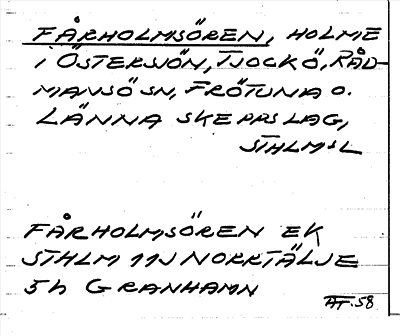 FÅRHOLMSÖREN, HOLME
I ÖSTERSJÖN, TJOCKÖ, RÅD-
MANSÖ SN, FRÖTUNA O.
LÄNNA SKEPPSLAG,
STHLMS L
FÅRHOLMSÖREN EK
STHLM 11J NORRTÄLJE
5h GRANHAMN
AF.58